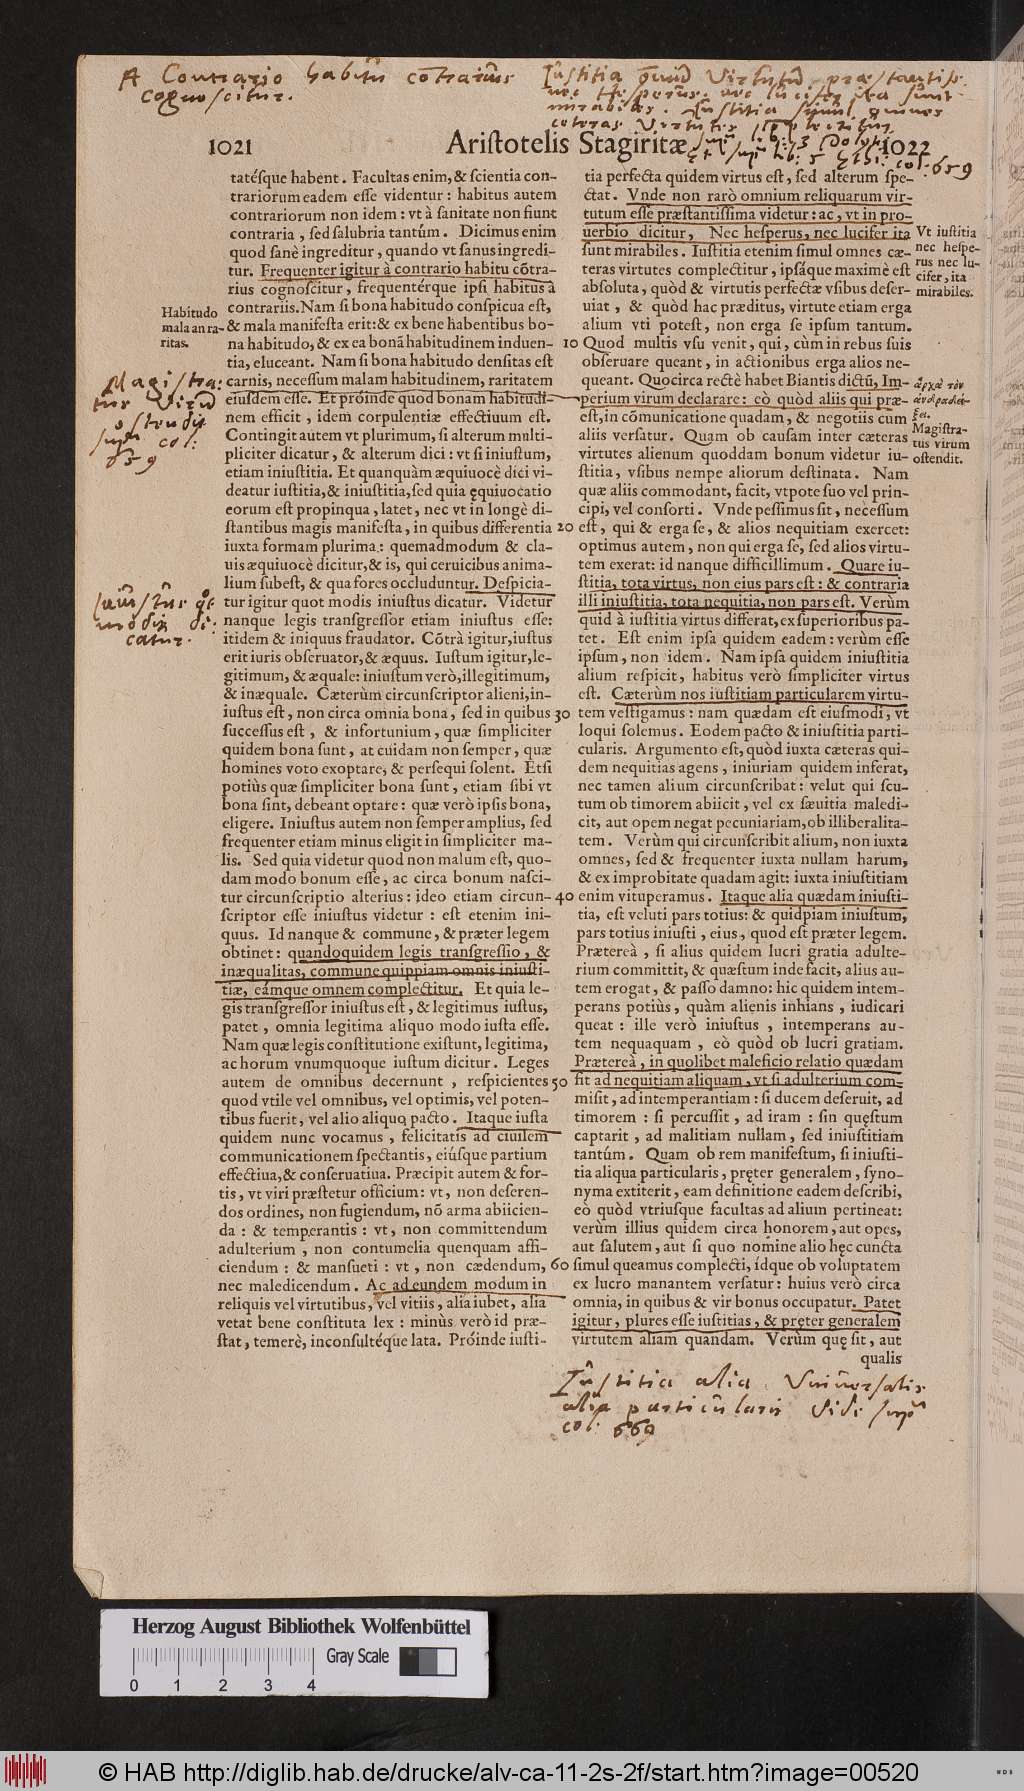 A Contrario habitu cōtrarius
cognoscitur.
Iustitia omniū Virtutū præstantiss.
nec Hesperus, nec lucifer ita sunt
mirabiles. Iustitia simul omnes
ceteras Virtutes
col. 659
1021
Aristotelis Stagiritæ
1022
tatésque habent. Facultas enim, & scientia con-
trariorum eadem esse videntur: habitus autem
contrariorum non idem: vt à sanitate non fiunt
contraria, sed salubria tantúm. Dicimus enim
quod sanè ingreditur, quando vt sanus ingredi-
tur. Frequenter igitur à contrario habitu cōtra-
rius cognoscitur, frequentérque ipsi habitus à
contrariis. Nam si bona habitudo conspicua est,
& mala manifesta erit: & ex bene habentibus bo-
na habitudo, & ex ea bonā habitudinem induen-
tia, eluceant. Nam si bona habitudo densitas est
carnis, necessum malam habitudinem, raritatem
eiusdem esse. Et próinde quod bonam habitudi-
nem efficit, idem corpulentiæ effectiuum est.
Contingit autem vt plurimum, si alterum multi-
pliciter dicatur, & alterum dici: vt si iniustum,
etiam iniustitia. Et quanquàm æquiuocè dici vi-
deatur iustitia, & iniustitia, sed quia ęquiuocatio
eorum est propinqua, latet, nec vt in longè di-
stantibus magis manifesta, in quibus differentia
iuxta formam plurima: quemadmodum & cla-
uis æquiuocè dicitur, & is, qui ceruicibus anima-
lium subest, & qua fores occluduntur. Despicia-
tur igitur quot modis iniustus dicatur. Videtur
nanque legis transgressor etiam iniustus esse:
itidem & iniquus fraudator. Cōtrà igitur, iustus
erit iuris obseruator, & æquus. Iustum igitur, le-
gitimum, & æquale: iniustum verò, illegitimum,
& inæquale. Cæterùm circunscriptor alieni, in-
iustus est, non circa omnia bona, sed in quibus
successus est, & infortunium, quæ simpliciter
quidem bona sunt, at cuidam non semper, quæ
homines voto exoptare, & persequi solent. Etsi
potiùs quæ simpliciter bona sunt, etiam sibi vt
bona sint, debeant optare: quæ verò ipsis bona,
eligere. Iniustus autem non semper amplius, sed
frequenter etiam minus eligit in simpliciter ma-
lis. Sed quia videtur quod non malum est, quo-
dam modo bonum esse, ac circa bonum nasci-
tur circunscriptio alterius: ideo etiam circun-
scriptor esse iniustus videtur: est etenim ini-
quus. Id nanque & commune, & præter legem
obtinet: quandoquidem legis transgressio, &
inæqualitas, commune quippiam omnis iniusti-
tiæ, eámque omnem complectitur. Et quia le-
gis transgressor iniustus est, & legitimus iustus,
patet, omnia legitima aliquo modo iusta esse.
Nam quæ legis constitutione existunt, legitima,
ac horum vnumquoque iustum dicitur. Leges
autem de omnibus decernunt, respicientes
quod vtile vel omnibus, vel optimis, vel poten-
tibus fuerit, vel alio aliquo pacto. Itaque iusta
quidem nunc vocamus, felicitatis ad ciuilem
communicationem spectantis, eiúsque partium
effectiua, & conseruatiua. Præcipit autem & for-
tis, vt viri præstetur officium: vt, non deseren-
dos ordines, non fugiendum, nō arma abiicien-
da: & temperantis: vt, non committendum
adulterium, non contumelia quenquam affi-
ciendum: & mansueti: vt, non cædendum,
nec maledicendum. Ac ad eundem modum in
reliquis vel virtutibus, vel vitiis, alia iubet, alia
vetat bene constituta lex: minùs verò id præ-
stat, temerè, inconsultéque lata. Próinde iusti-
Habitudo
mala an ra-
ritas.
Magistra-
tus Virū
ostendit
supra col:
659
Iniustus qt
modis di-
catur.
10
20
30
40
50
60
tia perfecta quidem virtus est, sed alterum spe-
ctat. Vnde non rarò omnium reliquarum vir-
tutum esse præstantissima videtur: ac, vt in pro-
uerbio dicitur, Nec hesperus, nec lucifer ita
sunt mirabiles. Iustitia etenim simul omnes cæ-
teras virtutes complectitur, ipsáque maximè est
absoluta, quòd & virtutis perfectæ vsibus deser-
uiat, & quòd hac præditus, virtute etiam erga
alium vti potest, non erga se ipsum tantum.
Quod multis vsu venit, qui, cùm in rebus suis
obseruare queant, in actionibus erga alios ne-
queant. Quocirca rectè habet Biantis dictū, Im-
perium virum declarare: eò quòd aliis qui præ-
est, in cōmunicatione quadam, & negotiis cum
aliis versatur. Quam ob causam inter cæteras
virtutes alienum quoddam bonum videtur iu-
stitia, vsibus nempe aliorum destinata. Nam
quæ aliis commodant, facit, vtpote suo vel prin-
cipi, vel consorti. Vnde pessimus sit, necessum
est, qui & erga se, & alios nequitiam exercet:
optimus autem, non qui erga se, sed alios virtu-
tem exerat: id nanque difficillimum. Quare iu-
stitia, tota virtus, non eius pars est: & contraria
illi iniustitia, tota nequitia, non pars est. Verùm
quid à iustitia virtus differat, ex superioribus pa-
tet. Est enim ipsa quidem eadem: verùm esse
ipsum, non idem. Nam ipsa quidem iniustitia
alium respicit, habitus verò simpliciter virtus
est. Cæterùm nos iustitiam particularem virtu-
tem vestigamus: nam quædam est eiusmodi, vt
loqui solemus. Eodem pacto & iniustitia parti-
cularis. Argumento est, quòd iuxta cæteras qui-
dem nequitias agens, iniuriam quidem inferat,
nec tamen alium circunscribat: velut qui scu-
tum ob timorem abiicit, vel ex sæuitia maledi-
cit, aut opem negat pecuniariam, ob illiberalita-
tem. Verùm qui circunscribit alium, non iuxta
omnes, sed & frequenter iuxta nullam harum,
& ex improbitate quadam agit: iuxta iniustitiam
enim vituperamus. Itaque alia quædam iniusti-
tia, est veluti pars totius: & quidpiam iniustum,
pars totius iniusti, eius, quod est præter legem.
Prætereà, si alius quidem lucri gratia adulte-
rium committit, & quæstum inde facit, alius au-
tem erogat, & passo damno: hic quidem intem-
perans potiùs, quàm alienis inhians, iudicari
queat: ille verò iniustus, intemperans au-
tem nequaquam, eò quòd ob lucri gratiam.
Prætereà, in quolibet maleficio relatio quædam
fit ad nequitiam aliquam, vt si adulterium com-
misit, ad intemperantiam: si ducem deseruit, ad
timorem: si percussit, ad iram: sin quęstum
captarit, ad malitiam nullam, sed iniustitiam
tantúm. Quam ob rem manifestum, si iniusti-
tia aliqua particularis, pręter generalem, syno-
nyma extiterit, eam definitione eadem describi,
eò quòd vtriusque facultas ad alium pertineat:
verùm illius quidem circa honorem, aut opes,
aut salutem, aut si quo nomine alio hęc cuncta
simul queamus complecti, ídque ob voluptatem
ex lucro manantem versatur: huius verò circa
omnia, in quibus & vir bonus occupatur. Patet
igitur, plures esse iustitias, & pręter generalem
virtutem aliam quandam. Verùm quę sit, aut
qualis
Vt iustitia
nec hespe-
rus nec lu-
cifer, ita
mirabiles.
ἀρχὰ τὸν
ἄνδρα δεί-
ξει.
Magistra-
tus virum
ostendit.
Iustitia alia Vniuersalis
alia particularis Vide supra
col: 669
Herzog August Bibliothek Wolfenbüttel
Gray Scale
0 1 2 3 4
© HAB http://diglib.hab.de/drucke/alv-ca-11-2s-2f/start.htm?image=00520